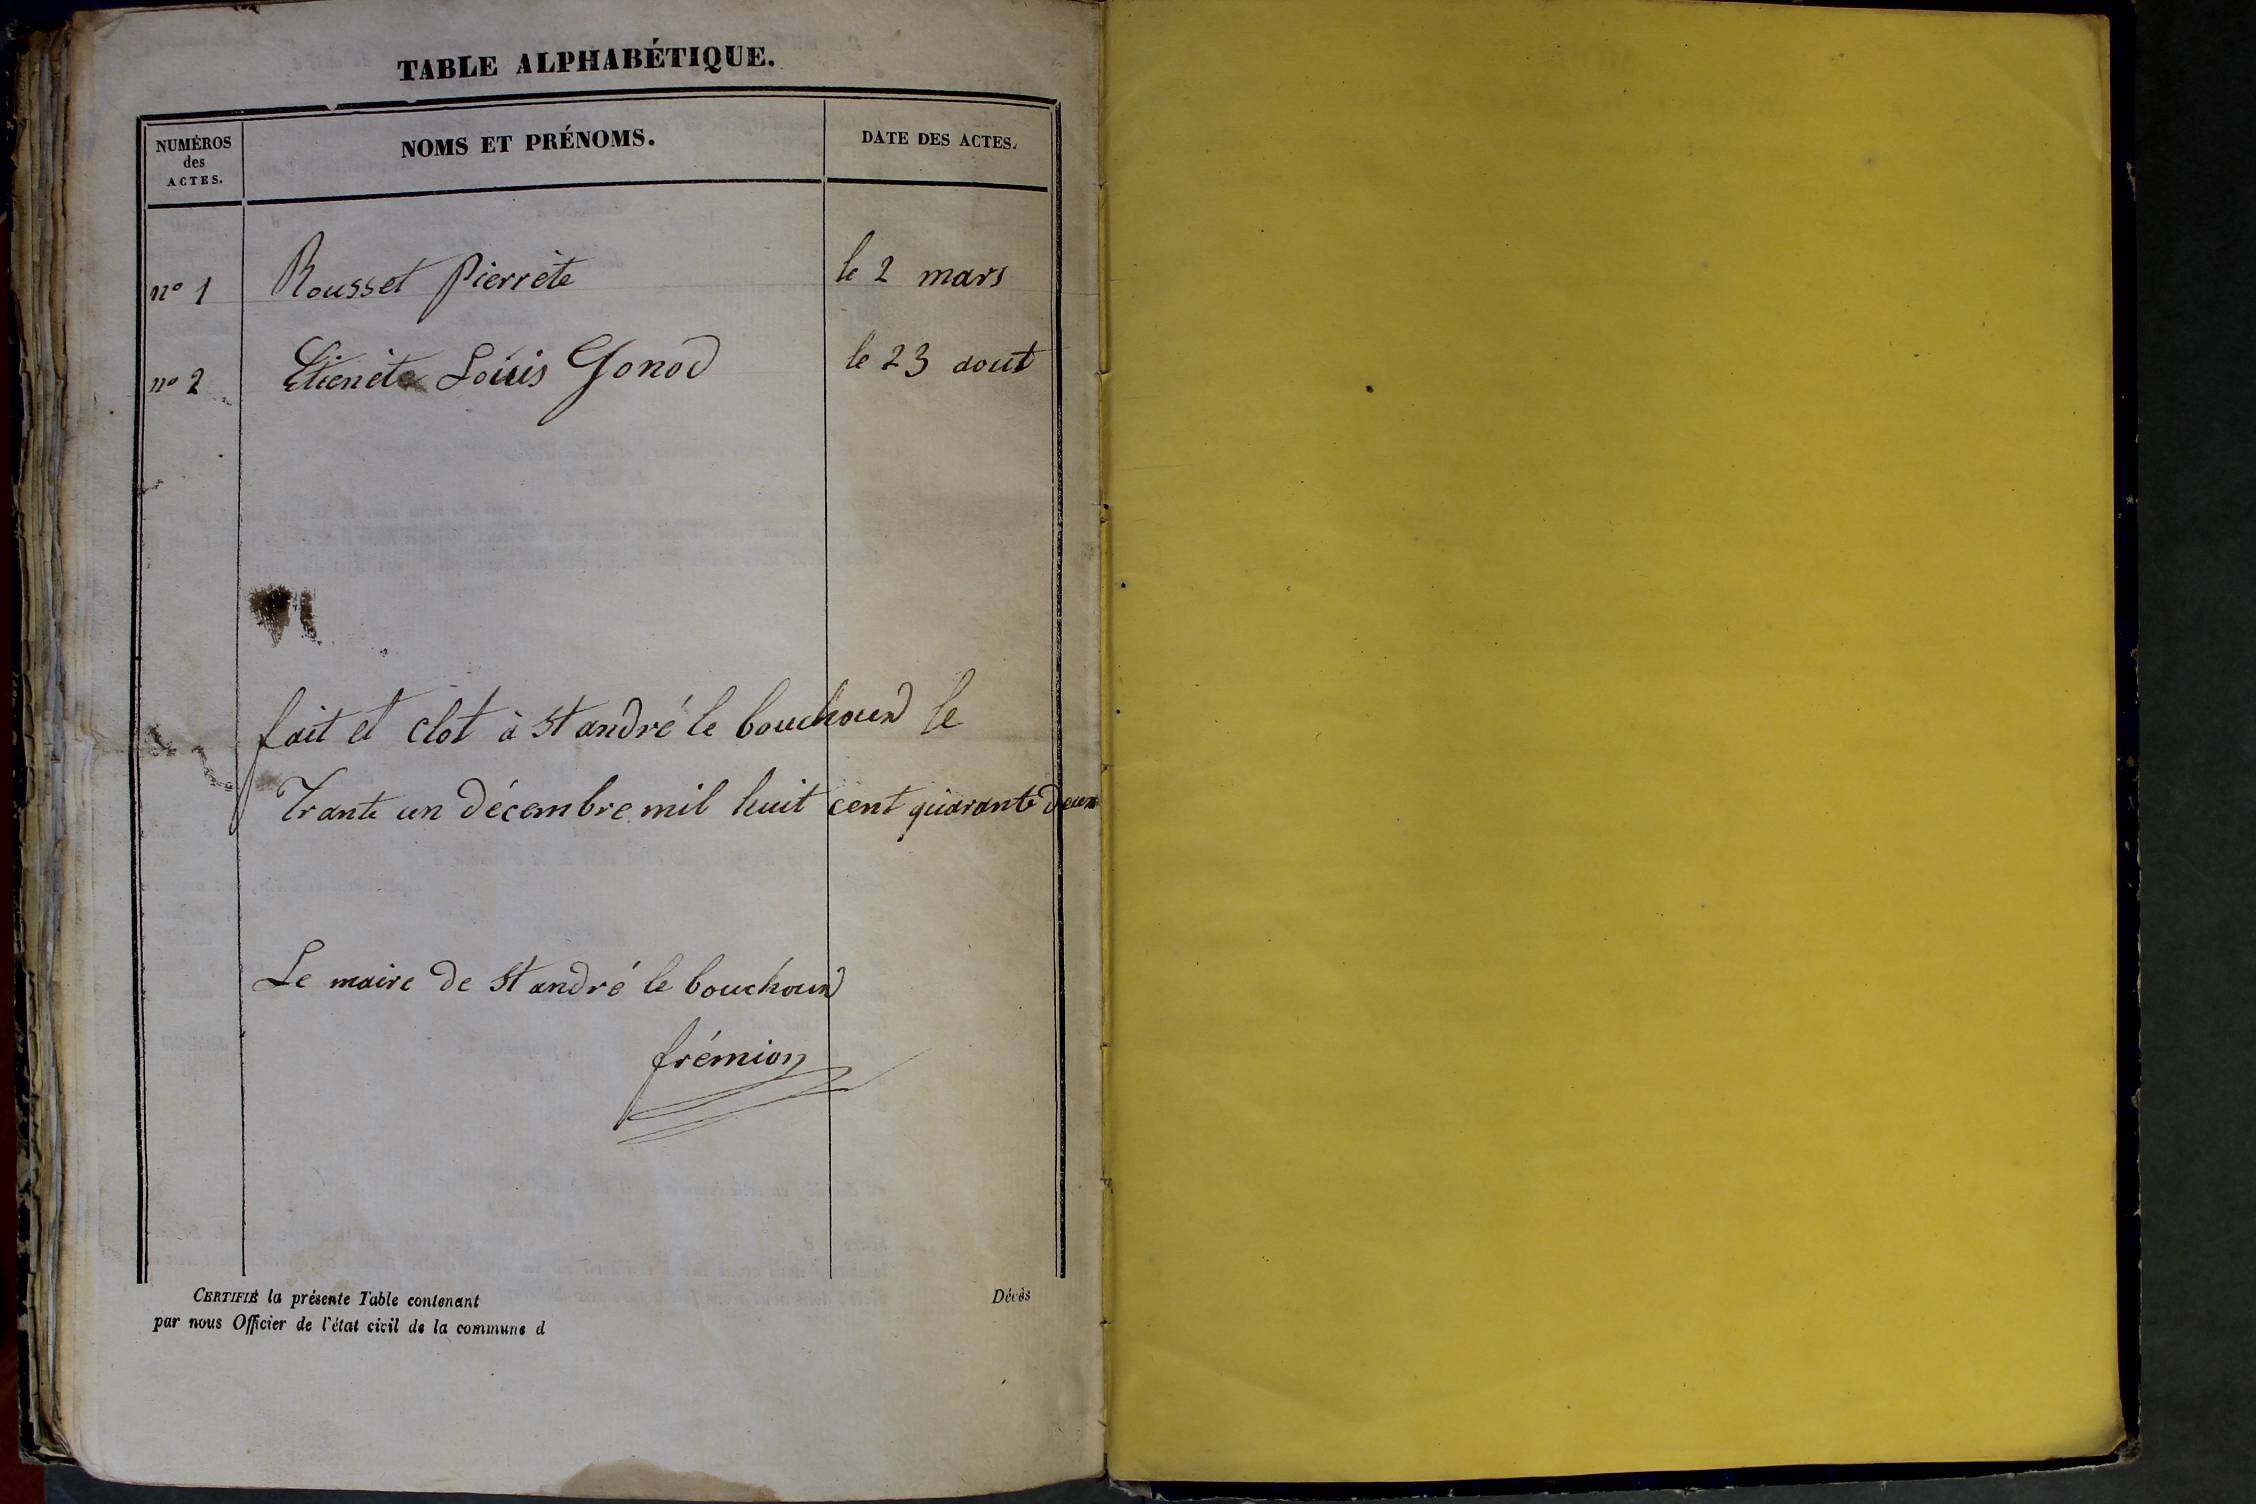 TABLE ALPHABÉTIQUE.
NUMÉROS
des
ACTES.
NOMS ET PRÉNOMS.
DATE DES ACTES.
nº 1 Rousset Pierrète le 2 mars
nº 2 Etienète Louis Gonod le 23 aout
fait et clot à St andré le bouchoud le
Trante un décembre mil huit cent quarante deux
Le maire de St andré le bouchoud
frémion
CERTIFIÉ la présente Table contenant Décès
par nous Officier de l'état civil de la commune d